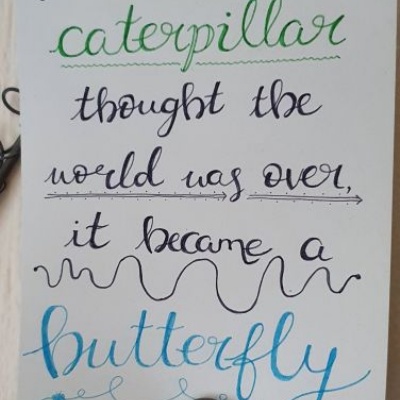 caterpillar
thought the
world was over,
it became a
butterfly